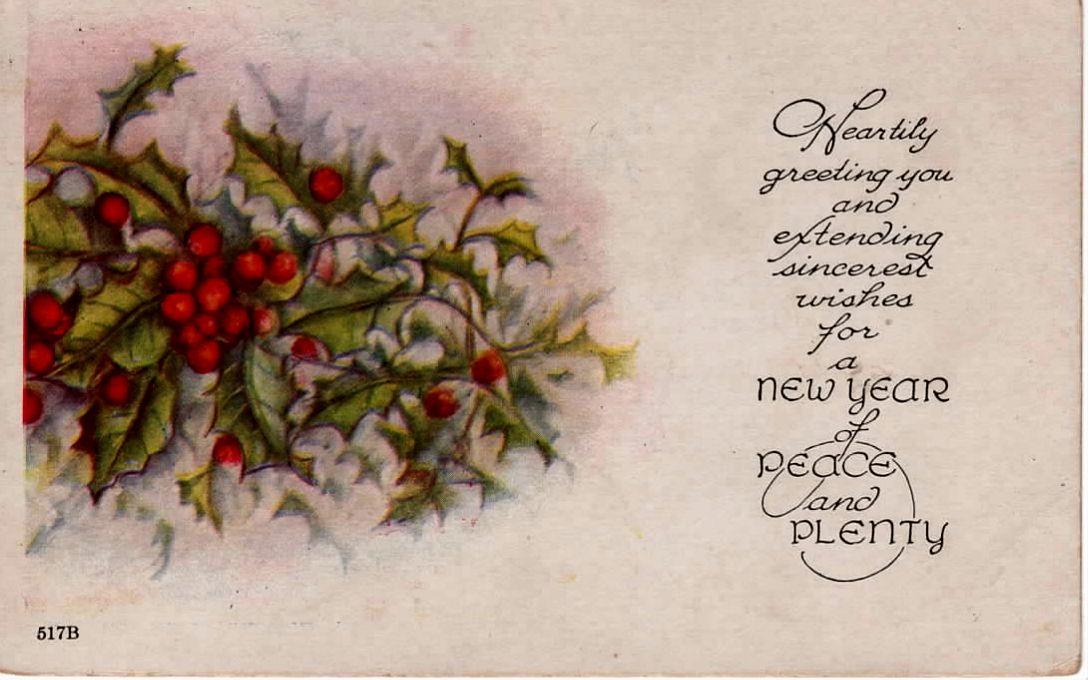 Heartily
greeting you
and
extending
sincerest
wishes
for
a
NEW YEAR
of
PEACE
and
PLENTY
517B